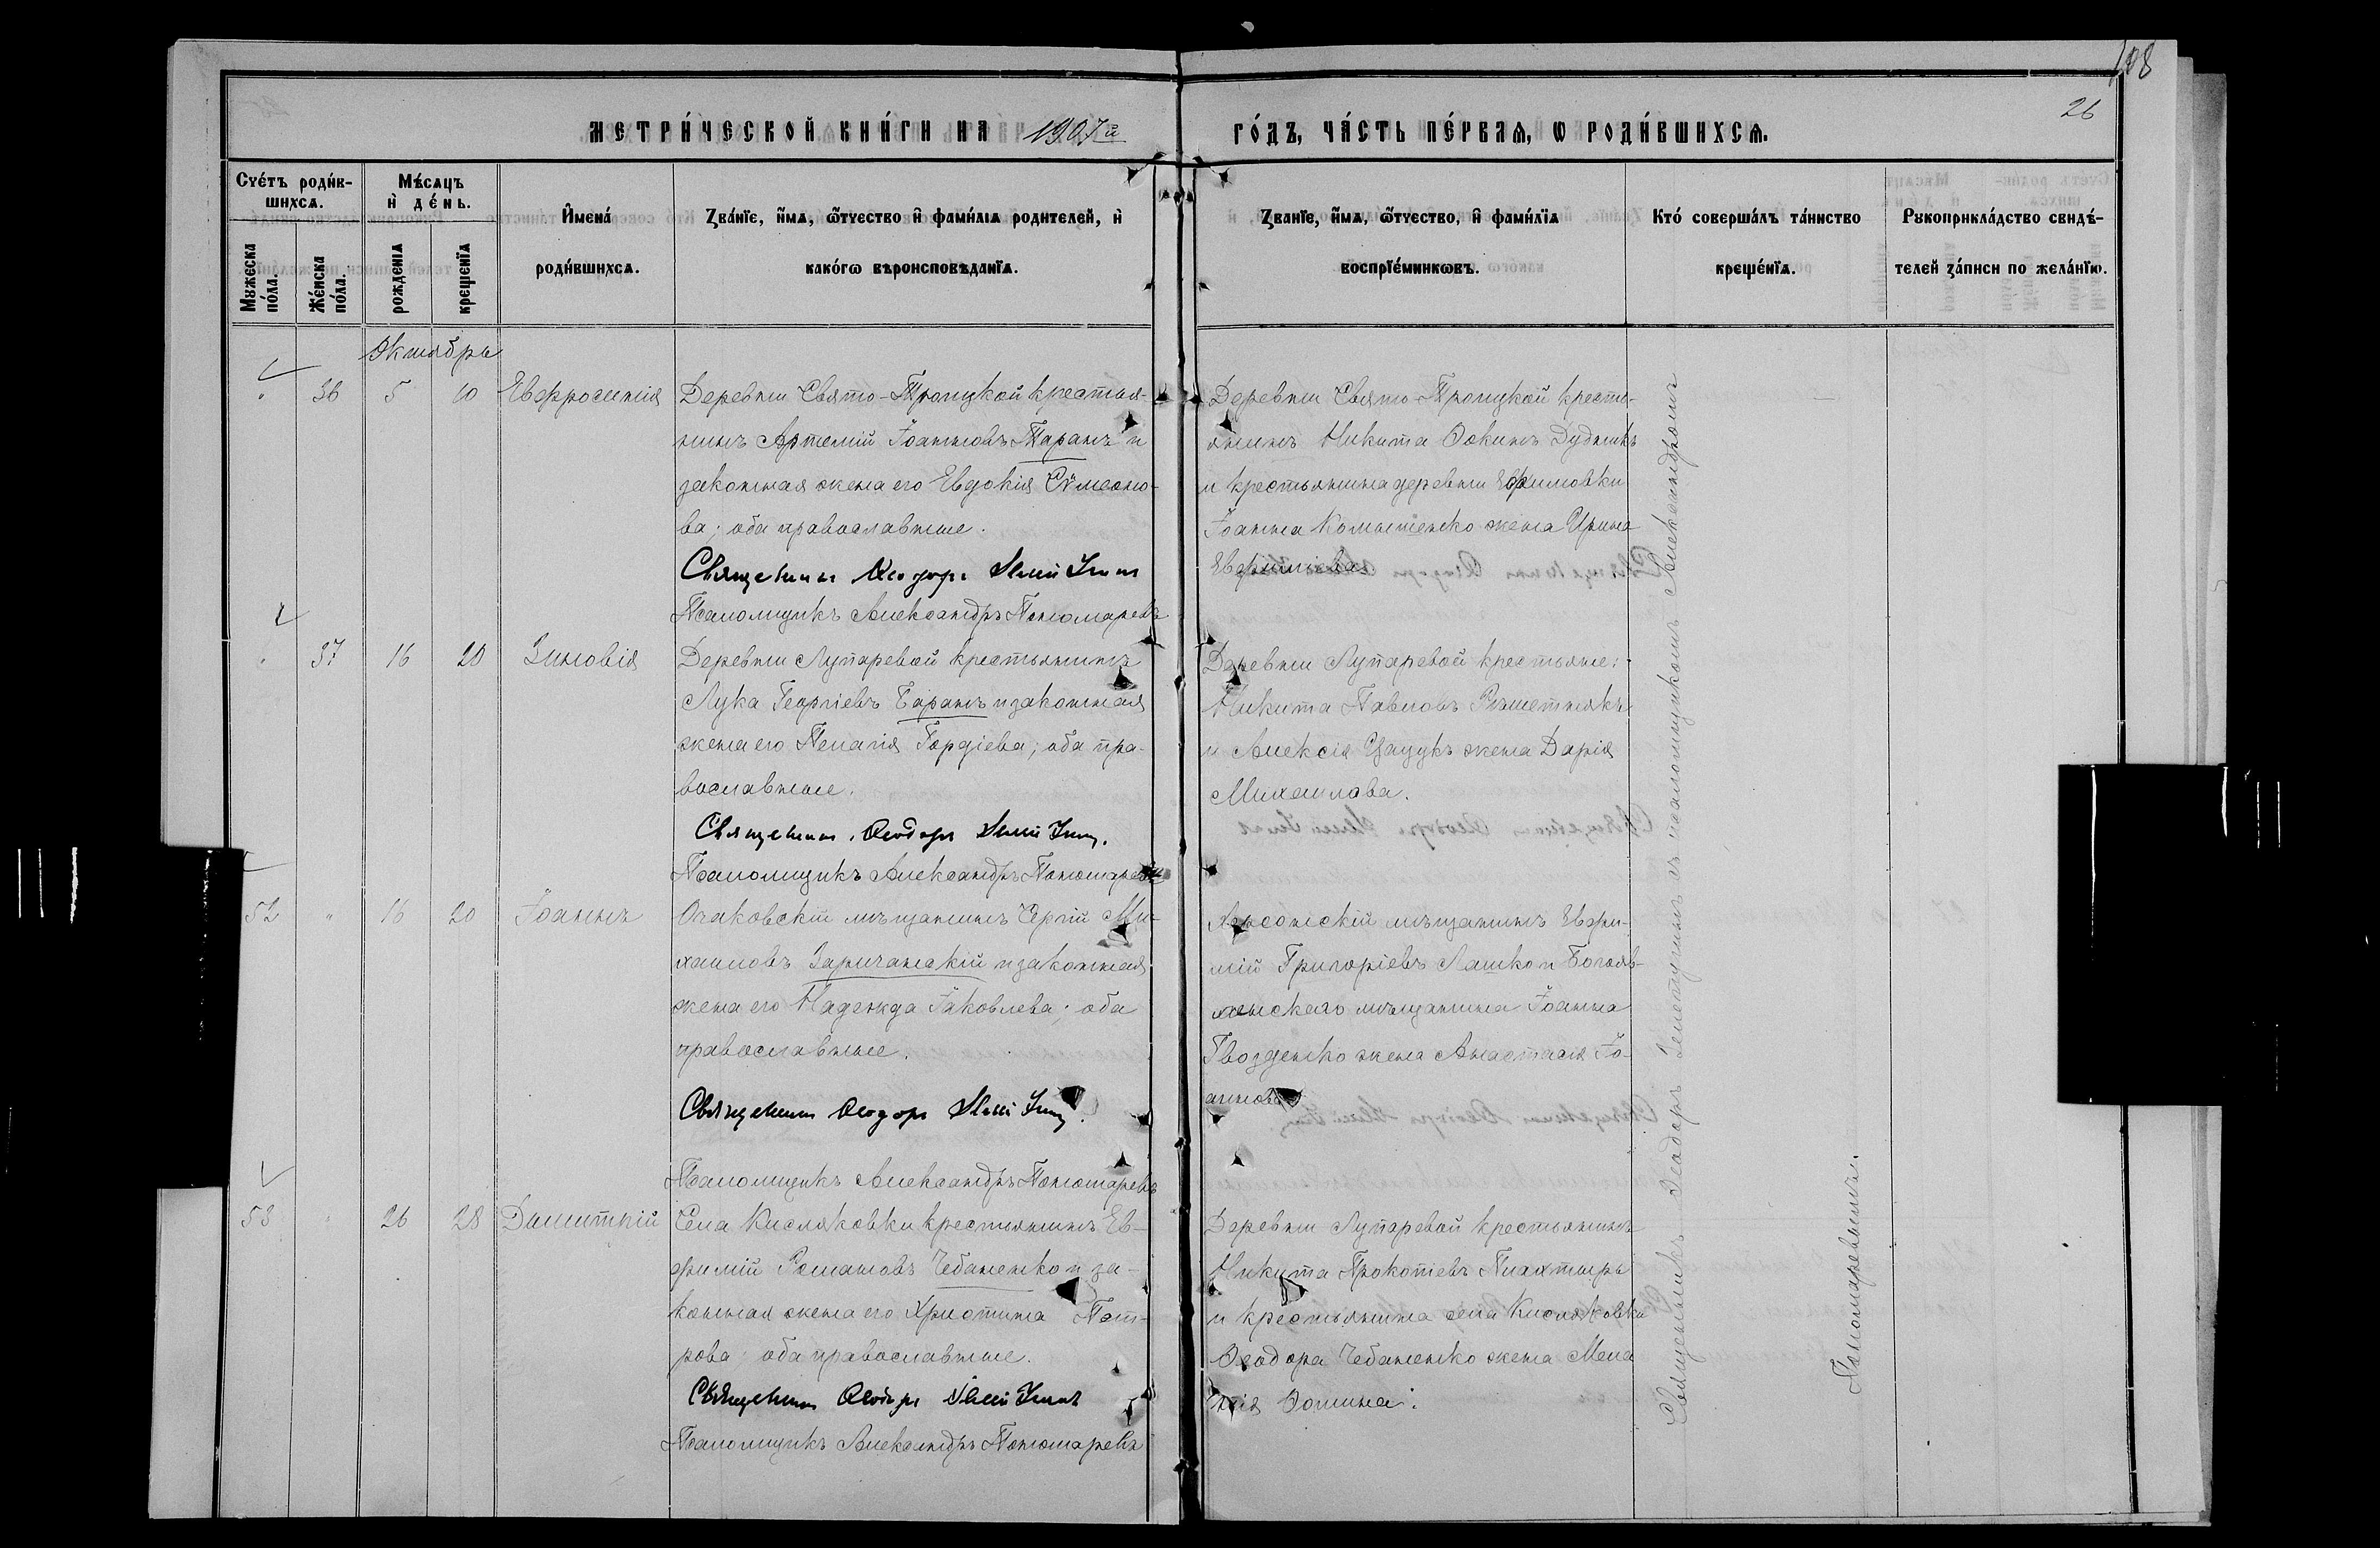 108
26
МЕТРИ́ЧЕСКОЙ КНИ́ГИ НА 1907й ГО́ДЪ, ЧА́СТЬ ПЕ́РВАѦ, Ѡ РОДИ́ВШИХСѦ.
Счéтъ роди́в-
шихсѧ.
Мꙋжеска
по́ла.
Же́нска
по́ла.
Мѣ́сѧцъ
и҆ де́нь.
рожденїѧ
крещенїѧ
И҆мена́
роди́вшихсѧ.
Зва́нїе, и҆́мѧ, ѻ҆́тчество и҆ фами́лїѧ родителей, и҆
како́гѡ вѣроисповѣданїѧ.
Зва́нїе, и҆́мѧ, ѻ҆́тчество, и҆ фами́лїѧ
воспрїе́мникѡвъ.
Кто́ соверша́лъ та́инство
креще́нїѧ.
Рꙋкоприкла́дство свидѣ́-
телей за́писи по жела́нїю.
Октябрь
36 5 10 Евфросинія
Деревни Свято-Троицкой крестья-
нинъ Артемій Іоанновъ Таранъ и
законная жена его Евдокія Сѵмеоно-
ва; оба православные.
Священникъ Ѳеодоръ
Псаломщикъ Александръ Пономаревъ
Деревни Свято-Троицкой кресть-
янинъ Никита Ѳокинъ Дудникъ
и крестьянина деревни Ефимовки
Іоанна жена Ирина
Евфиміева.
37 16 20 Зиновія
Деревни Лупаревой крестьянинъ
Лука Георгіевъ Баранъ и законная
жена его Пелагія Гордіева; оба пра-
вославные.
Священникъ Ѳеодоръ
Псаломщикъ Александръ Пономаревъ
Деревни Лупаревой крестьяне:
Никита Павловъ Рѣшетнякъ
и Алексія жена Дарія
Михаилова.
52 " 16 20 Іоаннъ
Очаковскій мѣщанинъ Сергій Ми-
хаиловъ Заричанскій и законная
жена его Надежда Іаковлева; оба
православные.
Священникъ Ѳеодоръ
Псаломщикъ Александръ Пономаревъ
Херсонскій мѣщанинъ Евфи-
мій Григоріевъ Лашко и Богояв-
ленскаго мѣщанина Іоанна
Гвозденко жена Анастасія Іо-
аннова
53 26 28 Димитрій
Села Кисляковки крестьянинъ Ев-
фимій Романовъ Чебаненко и за-
конная жена его Христина Пет-
рова; оба православные.
Священникъ Ѳеодоръ
Псаломщикъ Александръ Пономаревъ
Деревни Лупаревой крестьянинъ
Никита Прокопіевъ Плахтырь
и крестьянина села Кисляковки
Ѳеодора Чебаненко жена Мела
нія Ѳомина.
Священникъ Ѳеодоръ съ псаломщикомъ Александромъ
Пономаревымъ.